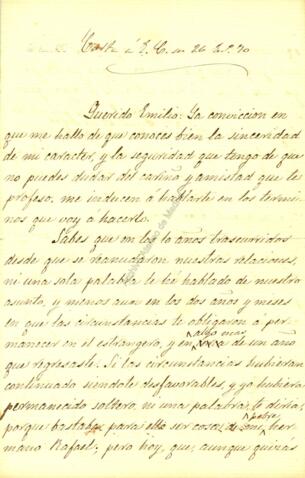 Contestⁿ á E. C. en 26 Eº 70
Querido Emilio: La conviccion en
que me hallo de que conoces bien la sinceridad
de mi caracter, y la seguridad que tengo de que
no puedes dudar del cariño y amistad que te
profeso, me inducen á hablarte en los termi-
nos que voy á hacerlo.
Sabes que en los 10 años trascurridos
desde que se reanudaron nuestras relaciones,
ni una sola palabra te hé hablado de nuestro
asunto, y menos aun en los dos años y meses
en que las circunstancias te obligaron á per-
manecer en el estrangero, y en algo mas de un año
que regresaste. Si las circunstancias hubieran
continuado siendote desfavorables, y yo hubiera
permanecido soltero, ni una palabra te diria,
porque bastaba para ello ser cosa de mi pobre her-
mano Rafael; pero hoy, que, aunque quizás